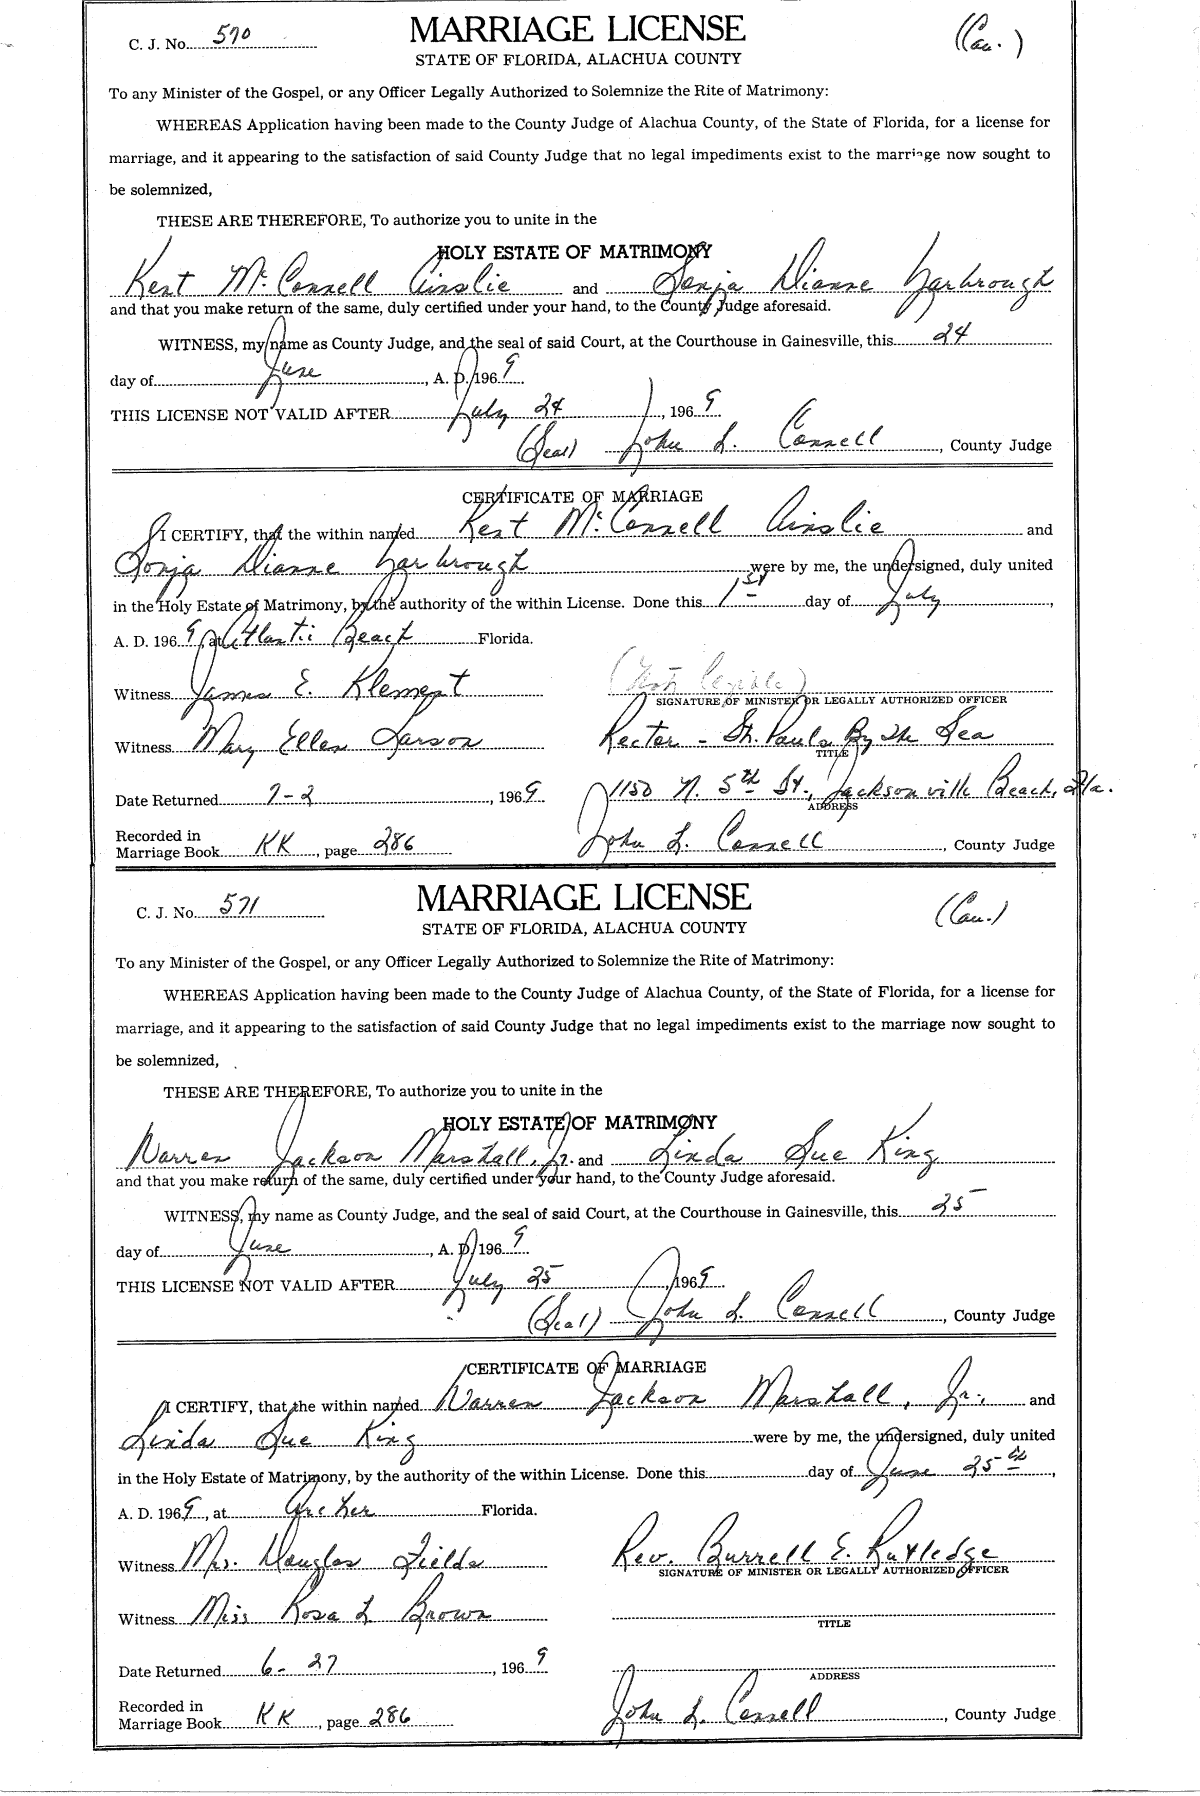 C. J. No. 570
MARRIAGE LICENSE
(Cau.)
STATE OF FLORIDA, ALACHUA COUNTY
To any Minister of the Gospel, or any Officer Legally Authorized to Solemnize the Rite of Matrimony:
WHEREAS Application having been made to the County Judge of Alachua County, of the State of Florida, for a license for
marriage, and it appearing to the satisfaction of said County Judge that no legal impediments exist to the marriage now sought to
be solemnized,
THESE ARE THEREFORE, To authorize you to unite in the
HOLY ESTATE OF MATRIMONY
Kent McConnell Ainslie and Sonja Dianne Yarbrough
and that you make return of the same, duly certified under your hand, to the County Judge aforesaid.
WITNESS, my name as County Judge, and the seal of said Court, at the Courthouse in Gainesville, this 24
day of June, A. D. 1969
THIS LICENSE NOT VALID AFTER July 24, 1969
(Seal) John L. Connell, County Judge
CERTIFICATE OF MARRIAGE
I CERTIFY, that the within named Kent McConnell Ainslie and
Sonja Dianne Yarbrough were by me, the undersigned, duly united
in the Holy Estate of Matrimony, by the authority of the within License. Done this 1st day of July,
A. D. 1969, at Atlantic Beach Florida.
Witness James E. Klement (Not Legible)
SIGNATURE OF MINISTER OR LEGALLY AUTHORIZED OFFICER
Witness Mary Ellen Larson Rector - St. Pauls By The Sea
TITLE
Date Returned 7-2, 1969 1150 N. 5th St., Jacksonville Beach, Fla.
ADDRESS
Recorded in
Marriage Book KK, page 286 John L. Connell, County Judge
C. J. No. 571
MARRIAGE LICENSE
(Cau.)
STATE OF FLORIDA, ALACHUA COUNTY
To any Minister of the Gospel, or any Officer Legally Authorized to Solemnize the Rite of Matrimony:
WHEREAS Application having been made to the County Judge of Alachua County, of the State of Florida, for a license for
marriage, and it appearing to the satisfaction of said County Judge that no legal impediments exist to the marriage now sought to
be solemnized,
THESE ARE THEREFORE, To authorize you to unite in the
HOLY ESTATE OF MATRIMONY
Warren Jackson Marshall, Jr. and Linda Sue King
and that you make return of the same, duly certified under your hand, to the County Judge aforesaid.
WITNESS, my name as County Judge, and the seal of said Court, at the Courthouse in Gainesville, this 25
day of June, A. D. 1969
THIS LICENSE NOT VALID AFTER July 25, 1969
(Seal) John L. Connell, County Judge
CERTIFICATE OF MARRIAGE
I CERTIFY, that the within named Warren Jackson Marshall, Jr., and
Linda Sue King were by me, the undersigned, duly united
in the Holy Estate of Matrimony, by the authority of the within License. Done this day of June 25th,
A. D. 1969, at Archer Florida.
Witness Mrs. Douglas Fields Rev. Burrell E. Rutledge
SIGNATURE OF MINISTER OR LEGALLY AUTHORIZED OFFICER
Witness Miss Rosa L Brown
TITLE
Date Returned 6-27, 1969
ADDRESS
Recorded in
Marriage Book KK, page 286 John L. Connell, County Judge